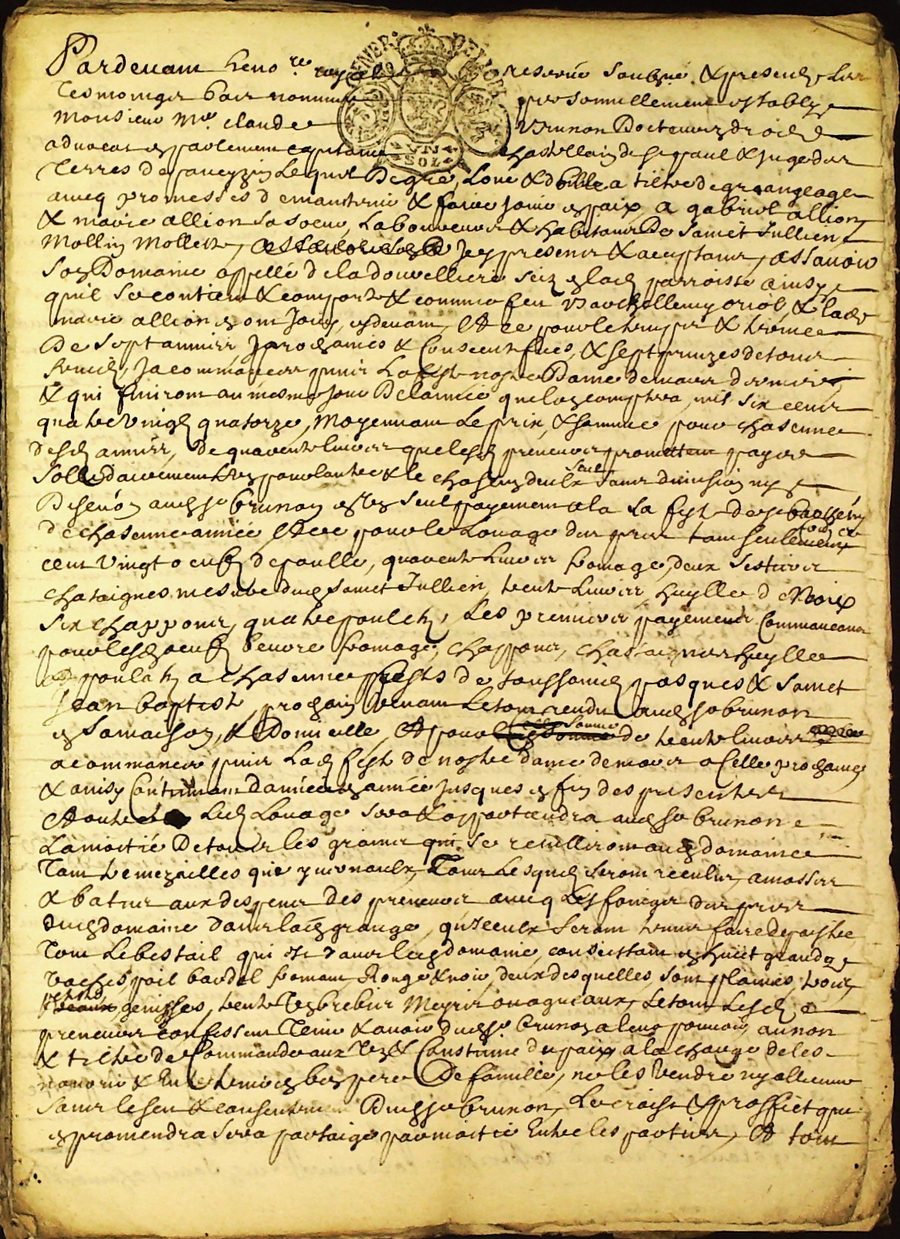 Pardevant le no.re royal reservé soubzné & presentz les
tesmoingz bas nommez personnellement establyz
Monsieur M.e Claude Brunon Docteur ez droictz
advocat en parlement capitaine chastellain de St Paul & juge des
GENER DE LION
UN SOL
terres de lequel de gré, loue & baille a tiltre de grangeage
avec promesses de maintenir & faire jouir en paix, a gabriel allion
& marie allion sa soeur, laboureurs & habitants de Sainct Jullien
Mollin Mollette, icy presentz & acceptans, assavoir
son Domaine appellé de la douvelliere size en lad. parroisse ainsy
qu'il se contient & comporte & comme feu Barthellemy oriol & lade
marie allion en ont jouy, cydevant, Et ce pour le temps & terme
De sept années prochaines & consecutives, & sept prinzes de tous
fruictz, Ja commancées puis la feste nostre Dame de mars derniere
& qui finiront au mesme jour De l'année que l'on comptera mil six centz
quatre vingtz quatorze, Moyennant le prix & somme pour chascune
desd. années, de quarente livres que lesd. preneurs promettent payer
sollidairement & le chascun d'eulx seul sans division ny
Discution aud. sr brunon en un seul payement a la feste de st barthelemy
de chascune année Et ce pour le louage des prés tant seulement
cent vingt oeufz de poulle, quarente livres fromage, deux sestiers
chataignes mesure dud. Sainct Jullien, trente livres huylle de Noix
six chappons, quatre pouletz, Les premiers payementz commanceront
pour lesd. oeufz beurre fromage, chappons, chastaignes huylle
& pouletz a chascune festes de toussainctz pasques & Sainct
Jean baptiste prochain venant le tout rendu aud. sr brunon
en sa maison, & Domicille, Et pour lad. somme de trente livres
a commancer puis lad. feste de nostre dame de mars a celle prochaine
& ainsy continuant d'année en année jusques en fin des presentes
Et oultre led. louage sera & appartiendra aud. sr brunon
La moitié De tous les grains qui se recuilliront aud. domaine
Tant tremezailles que yvernaulx, Tous lesquelz seront recullis, amasses
& batus aux despens des preneurs avec les foinges des prés
dud. domaine dans lad. grange, qu'iceulx seront tenus faire depaistre
Tout le bestail qui est dans led. domaine, consistant en huict grandz
vaches poil bardel froment, Rouge & noir, deux desquelles sont plaines, trois
petites genisses, trente brebis Meyris ou agneaux, Le tout lesd.
preneurs confessent tenir & avoir dud. sr brunon a leur pouvoir, au nom
& tiltre de Commande aux & Constitut de paix a la charge de les
nourrir & entretenir en bon pere De famille, ne les vendre ny alliener
sans le sceu & consentement Dud. sr brunon, Le croist & proffict qui
en proviendra sera partaigé par moitié Entre les parties, Et tout